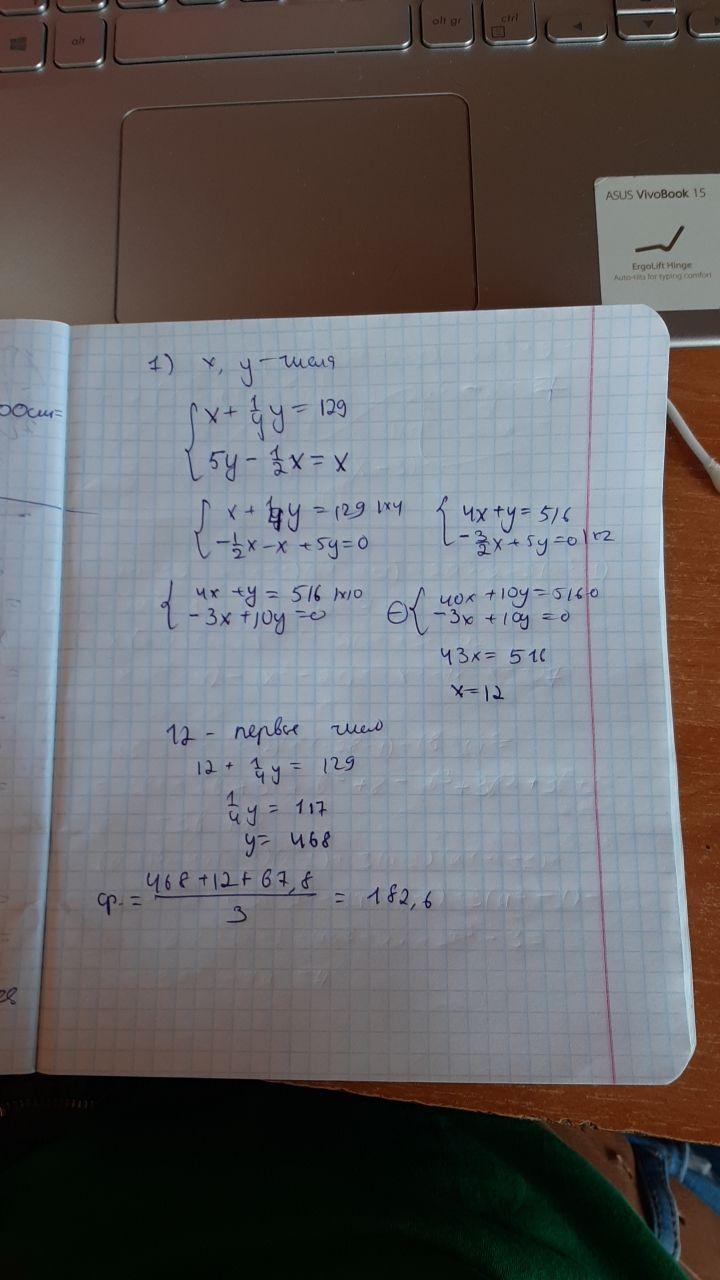 alt
alt gr
ctrl
ASUS VivoBook 15
ErgoLift Hinge
Auto-tilts for typing comfort
1) x, y – числа
x + 1/4 y = 129
5y - 1/2 x = x
x + 1/4 y = 129 |×4
-1/2 x - x + 5y = 0
4x + y = 516
-3/2 x + 5y = 0 |×2
4x + y = 516 |×10
-3x + 10y = 0
⊖ 40x + 10y = 5160
-3x + 10y = 0
43x = 516
x = 12
12 - первое число
12 + 1/4 y = 129
1/4 y = 117
y = 468
ср. = (468 + 12 + 67,8)/3 = 182,6